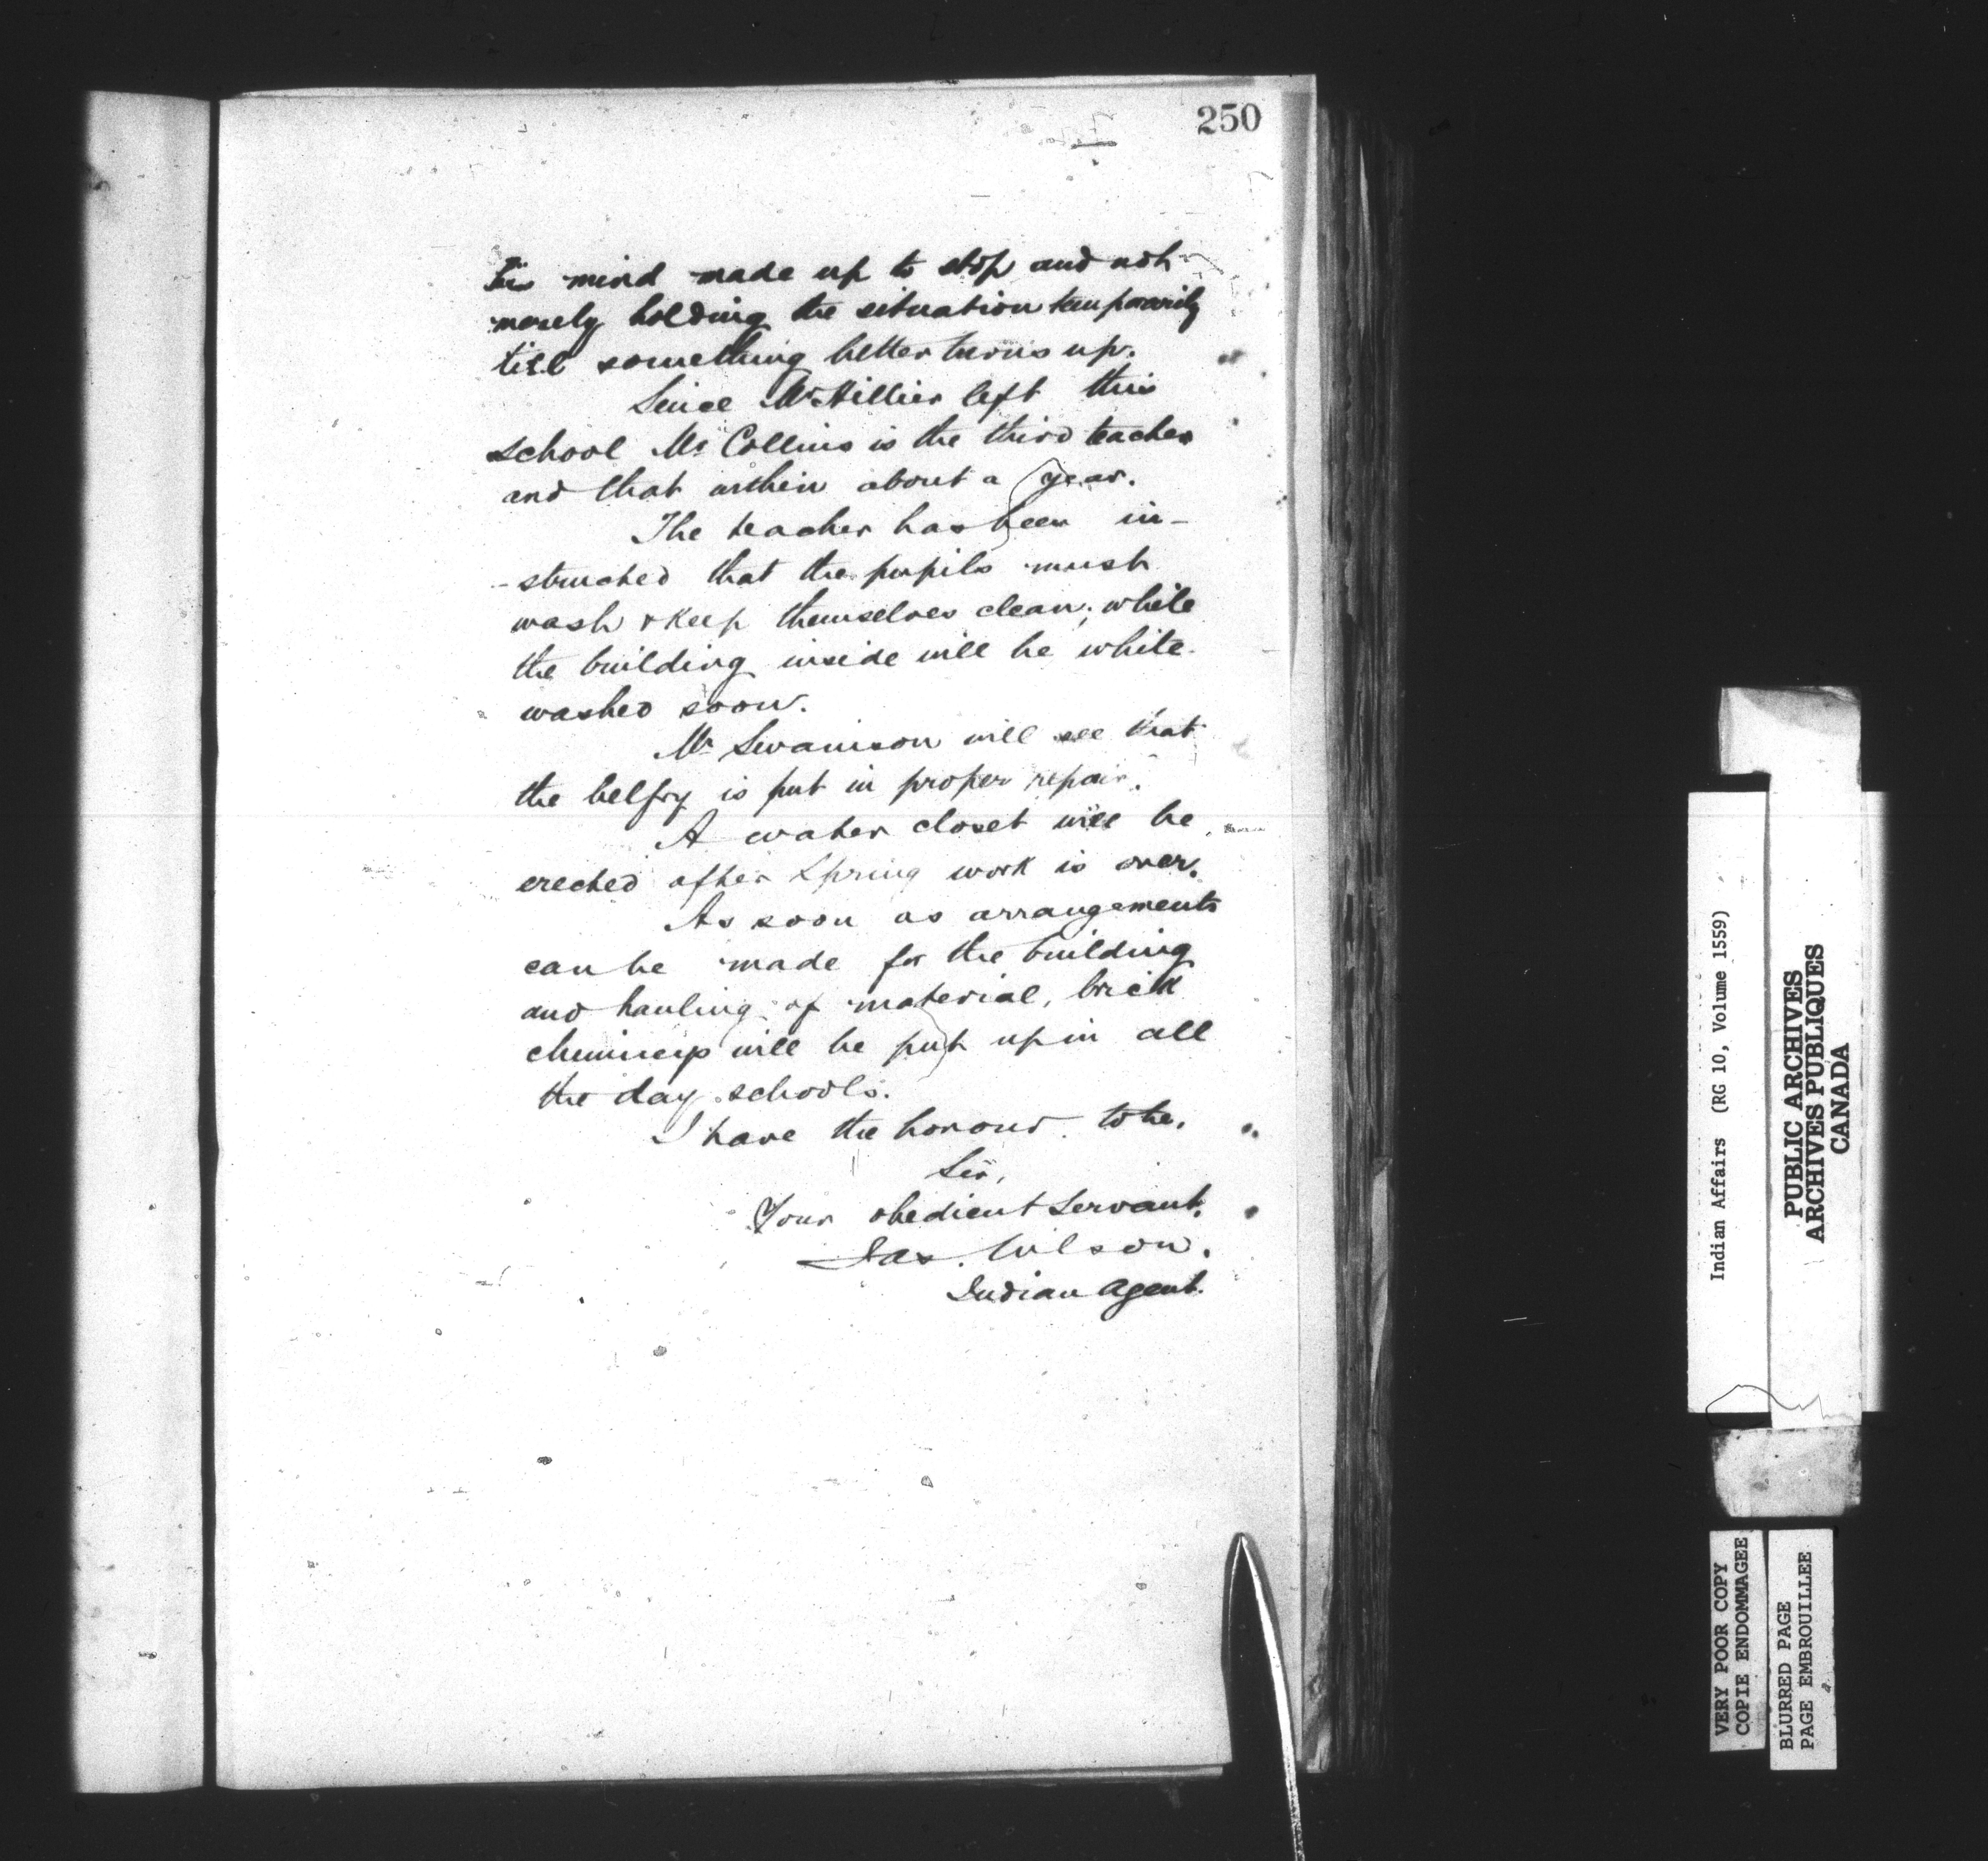 250
his mind made up to stop and not
merely holding the situation temporarily
till something better turns up.
Since Mr Hillier left this
school Mr Collins is the third teacher
and that within about a year.
The teacher has been in-
-structed that the pupils must
wash & keep themselves clean; while
the building inside will be white-
washed soon.
Mr Swainson will see that
the belfry is put in proper repair.
A water closet will be
erected after Spring work is over.
As soon as arrangements
can be made for the building
and hauling of material, brick
chimneys will be put up in all
the day schools.
I have the honour to be,
Sir,
Your obedient Servant.
Jas. Wilson.
Indian Agent.
Indian Affairs (RG 10, Volume 1559)
PUBLIC ARCHIVES
ARCHIVES PUBLIQUES
CANADA
VERY POOR COPY
COPIE ENDOMMAGEE
BLURRED PAGE
PAGE EMBROUILLEE